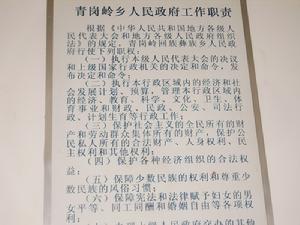 青岗岭乡人民政府工作职责
根据《中华人民共和国地方各级人
民代表大会和地方各级人民政府组织
法》的规定,青岗岭回族彝族乡人民政
府行使下列职权:
(一)执行本级人民代表大会的决议
和上级国家行政机关的决定和命令,发
布决定和命令;
(二)执行本行政区域内的经济和社
会发展计划、预算,管理本行政区域内
的经济、教育、科学、文化、卫生、体
育事业和财政、民政、公安、司法行
政、计划生育等行政工作;
(三)保护社会主义的全民所有的财
产和劳动群众集体所有的财产,保护公
民私人所有的合法财产、人身权利、民
主权利和其他权利;
(四)保护各种经济组织的合法权
益;
(五)保障少数民族的权利和尊重少
数民族的风俗习惯;
(六)保障宪法和法律赋予妇女的男
女平等、同工同酬和婚姻自由等各项权
利;
人民政府交办的其他